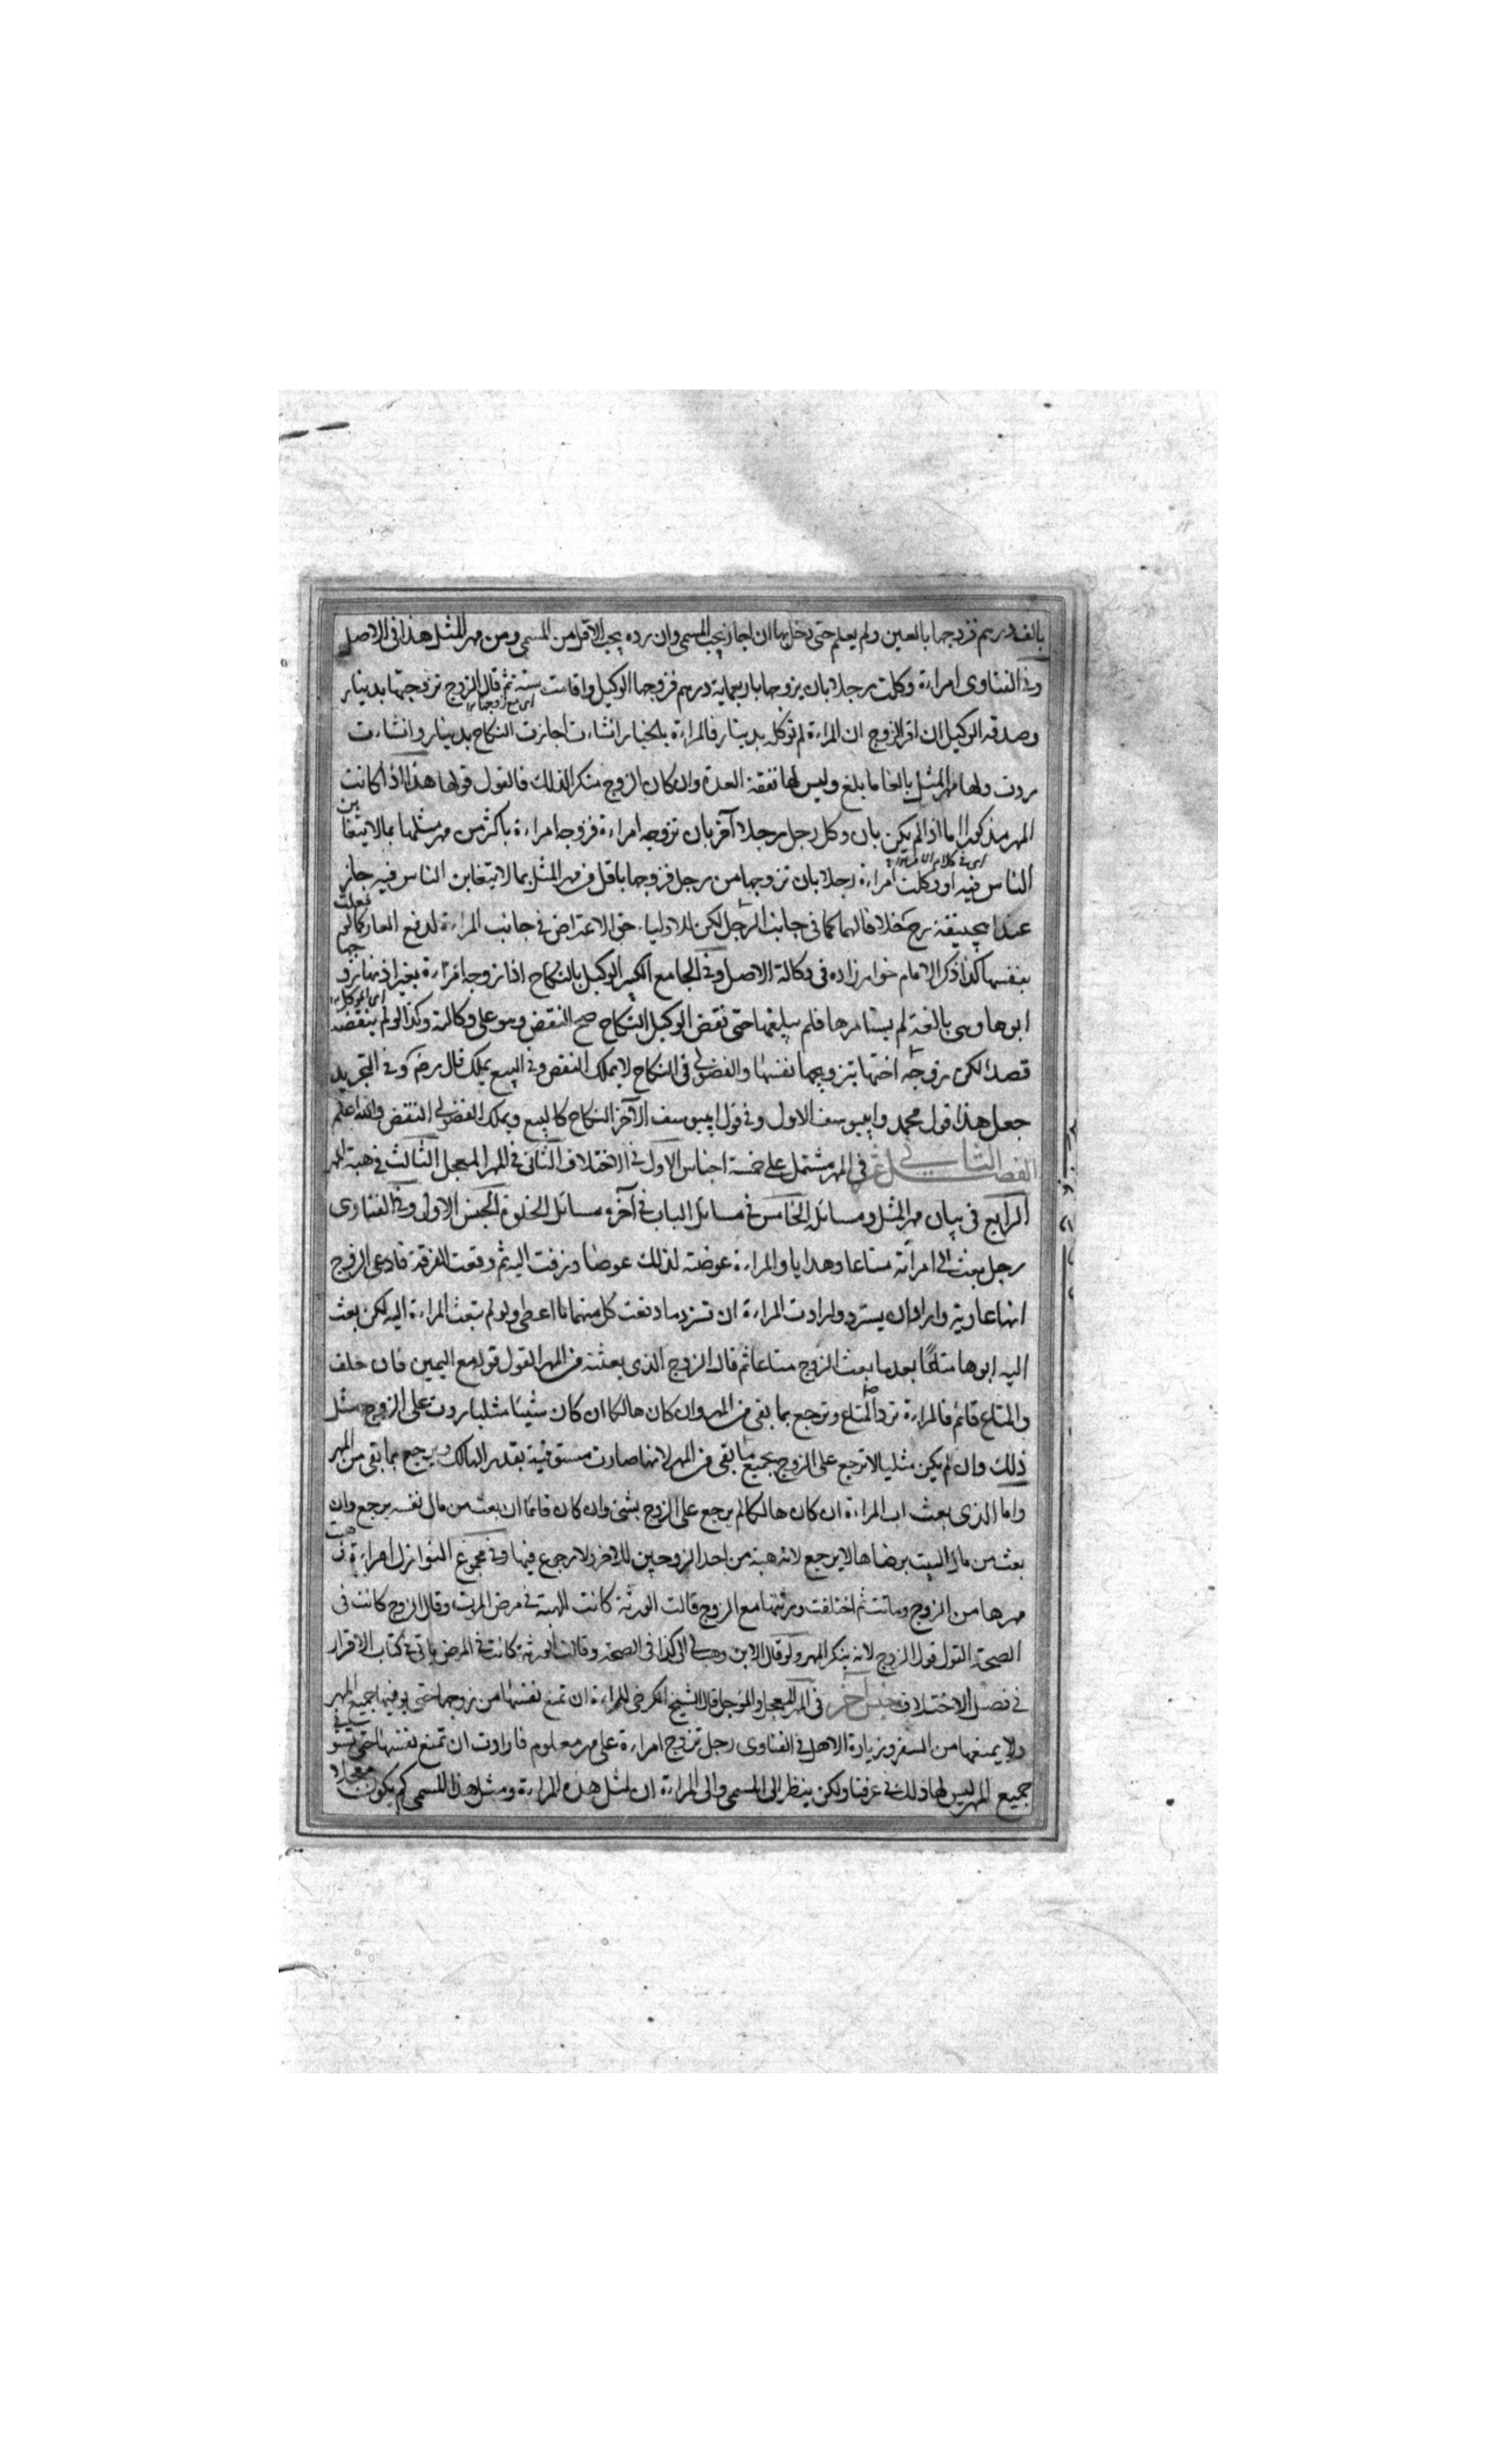 بالف درهم فزوجها بالفين ولم يعلم حتى دخل بها ان اجاز يجب المسمى وان رده يجب الاقل من المسمى ومن مهر المثل هذا فى الاصل
وفى الفتاوى امراءة وكلت رجلا بان يزوجها باربعماية درهم فزوجها الوكيل واقامت سنة ثم قال الزوج تزوجتها بدينار
اى مع زوجها
وصدقه الوكيل ان اقر الزوج ان المراءة لم توكله بدينار فالمراءة بالخيار ان شاءت اجازت النكاح بدينار وان شاءت
ردت ولها مهر المثل بالغا ما بلغ وليس لها نفقة العدة وان كان الزوج منكرا لذلك فالقول قولها هذا اذا كانت
المهر مذكورا اما اذا لم يكن بان وكل رجل رجلا آخر بان تزوجه امراءة فزوجه امراءة باكثر من مهر مثلها بما لا يتغابن
الناس فيه او وكلت امراءة رجلا بان تزوجها من رجل فزوجها باقل من مهر المثل بما لا يتغابن الناس فيه جاز
عند ابيحنيفة رح خلافا لهما كما فى جانب الرجل لكن للاولياء حق الاعتراض فى جانب المراءة لدفع العار كما لو فعلت
بنفسها كذا ذكر الامام خواهرزاده فى وكالة الاصل وفى الجامع الكبير الوكيل بالنكاح اذا تزوجه امراءة بغير اذنها زوجها
ابوها وهى بالغة لم يستامرها فلم يبلغها حتى نقض الوكيل النكاح صح النقض وهو على وكالته وكذا لو لم ينقضه
اى الموكل
قصدا لكن زوجه اختها بتزويجها نفسها والفضولى فى النكاح لا يملك النقض وفى البيع يملك قال رضى وفى التجريد
جعل هذا قول محمد وابيوسف الاول وفى قول ابيوسف الآخر النكاح كالبيع ويملك الفضولى النقض والله اعلم
الفصل الثانى عشر فى المهر مشتمل على خمسة اجناس الاول فى الاختلاف الثانى فى المهر المعجل الثالث فى هبة المهر
الرابع فى بيان مهر المثل ومسائله الخامس فى مسائل الباب فى آخره مسائل الخلوة الجنس الاول وفى الفتاوى
رجل بعث الى امرأته متاعا وهدايا والمراءة عوضته لذلك عوضا وزفت اليه ثم وقعت الفرقة فادعى الزوج
انها عارية واراد ان يسترد وارادت المراءة ان تسترد ما دفعت كل منهما ما اعطى ولو لم تبعث المراءة اليه لكن بعث
اليه ابوها متاعا بعد ما بعث الزوج متاعا ثم قال الزوج الذى بعثته من المهر القول قوله مع اليمين فان حلف
والمتاع قائم فالمراءة ترد المتاع وترجع بما بقى من المهر وان كان هالكا ان كان شيئا مثليا ردت على الزوج مثل
ذلك وان لم يكن مثليا لا ترجع على الزوج بجميع ما بقى من المهر لانها صارت مستوفية بقدر الهالك ويرجع بما بقى من المهر
واما الذى بعث اب المراءة ان كان هالكا لم يرجع على الزوج بشئ وان كان قائما ان بعث من مال نفسه يرجع وان
بعث من مال البنت برضاها لا يرجع لانه هبة من احد الزوجين للآخر ولا رجوع فيها وفى مجموع النوازل امراءة وهبت
مهرها من الزوج وماتت ثم اختلفت ورثتها مع الزوج قالت الورثة كانت الهبة فى مرض الموت وقال الزوج كانت فى
الصحة القول قول الزوج لانه ينكر المهر ولو قال الابن وهب لى ابى كذا فى الصحة وقالت الورثة كانت فى المرض ياتى فى كتاب الاقرار
فى فصل الاختلاف جنس آخر فى المهر المعجل والمؤجل قال الشيخ الكرخى للمراءة ان تمنع نفسها من زوجها حتى يوفيها جميع المهر
ولا يمنعها من السفر وزيارة الاهل فى الفتاوى رجل تزوج امراءة على مهر معلوم فارادت ان تمنع نفسها حتى تستوفى
جميع المهر ليس لها ذلك فى عرفنا ولكن ينظر الى المسمى والى المراءة ان لمثل هذه المراءة ومثل هذا المسمى كم يكون معجلا